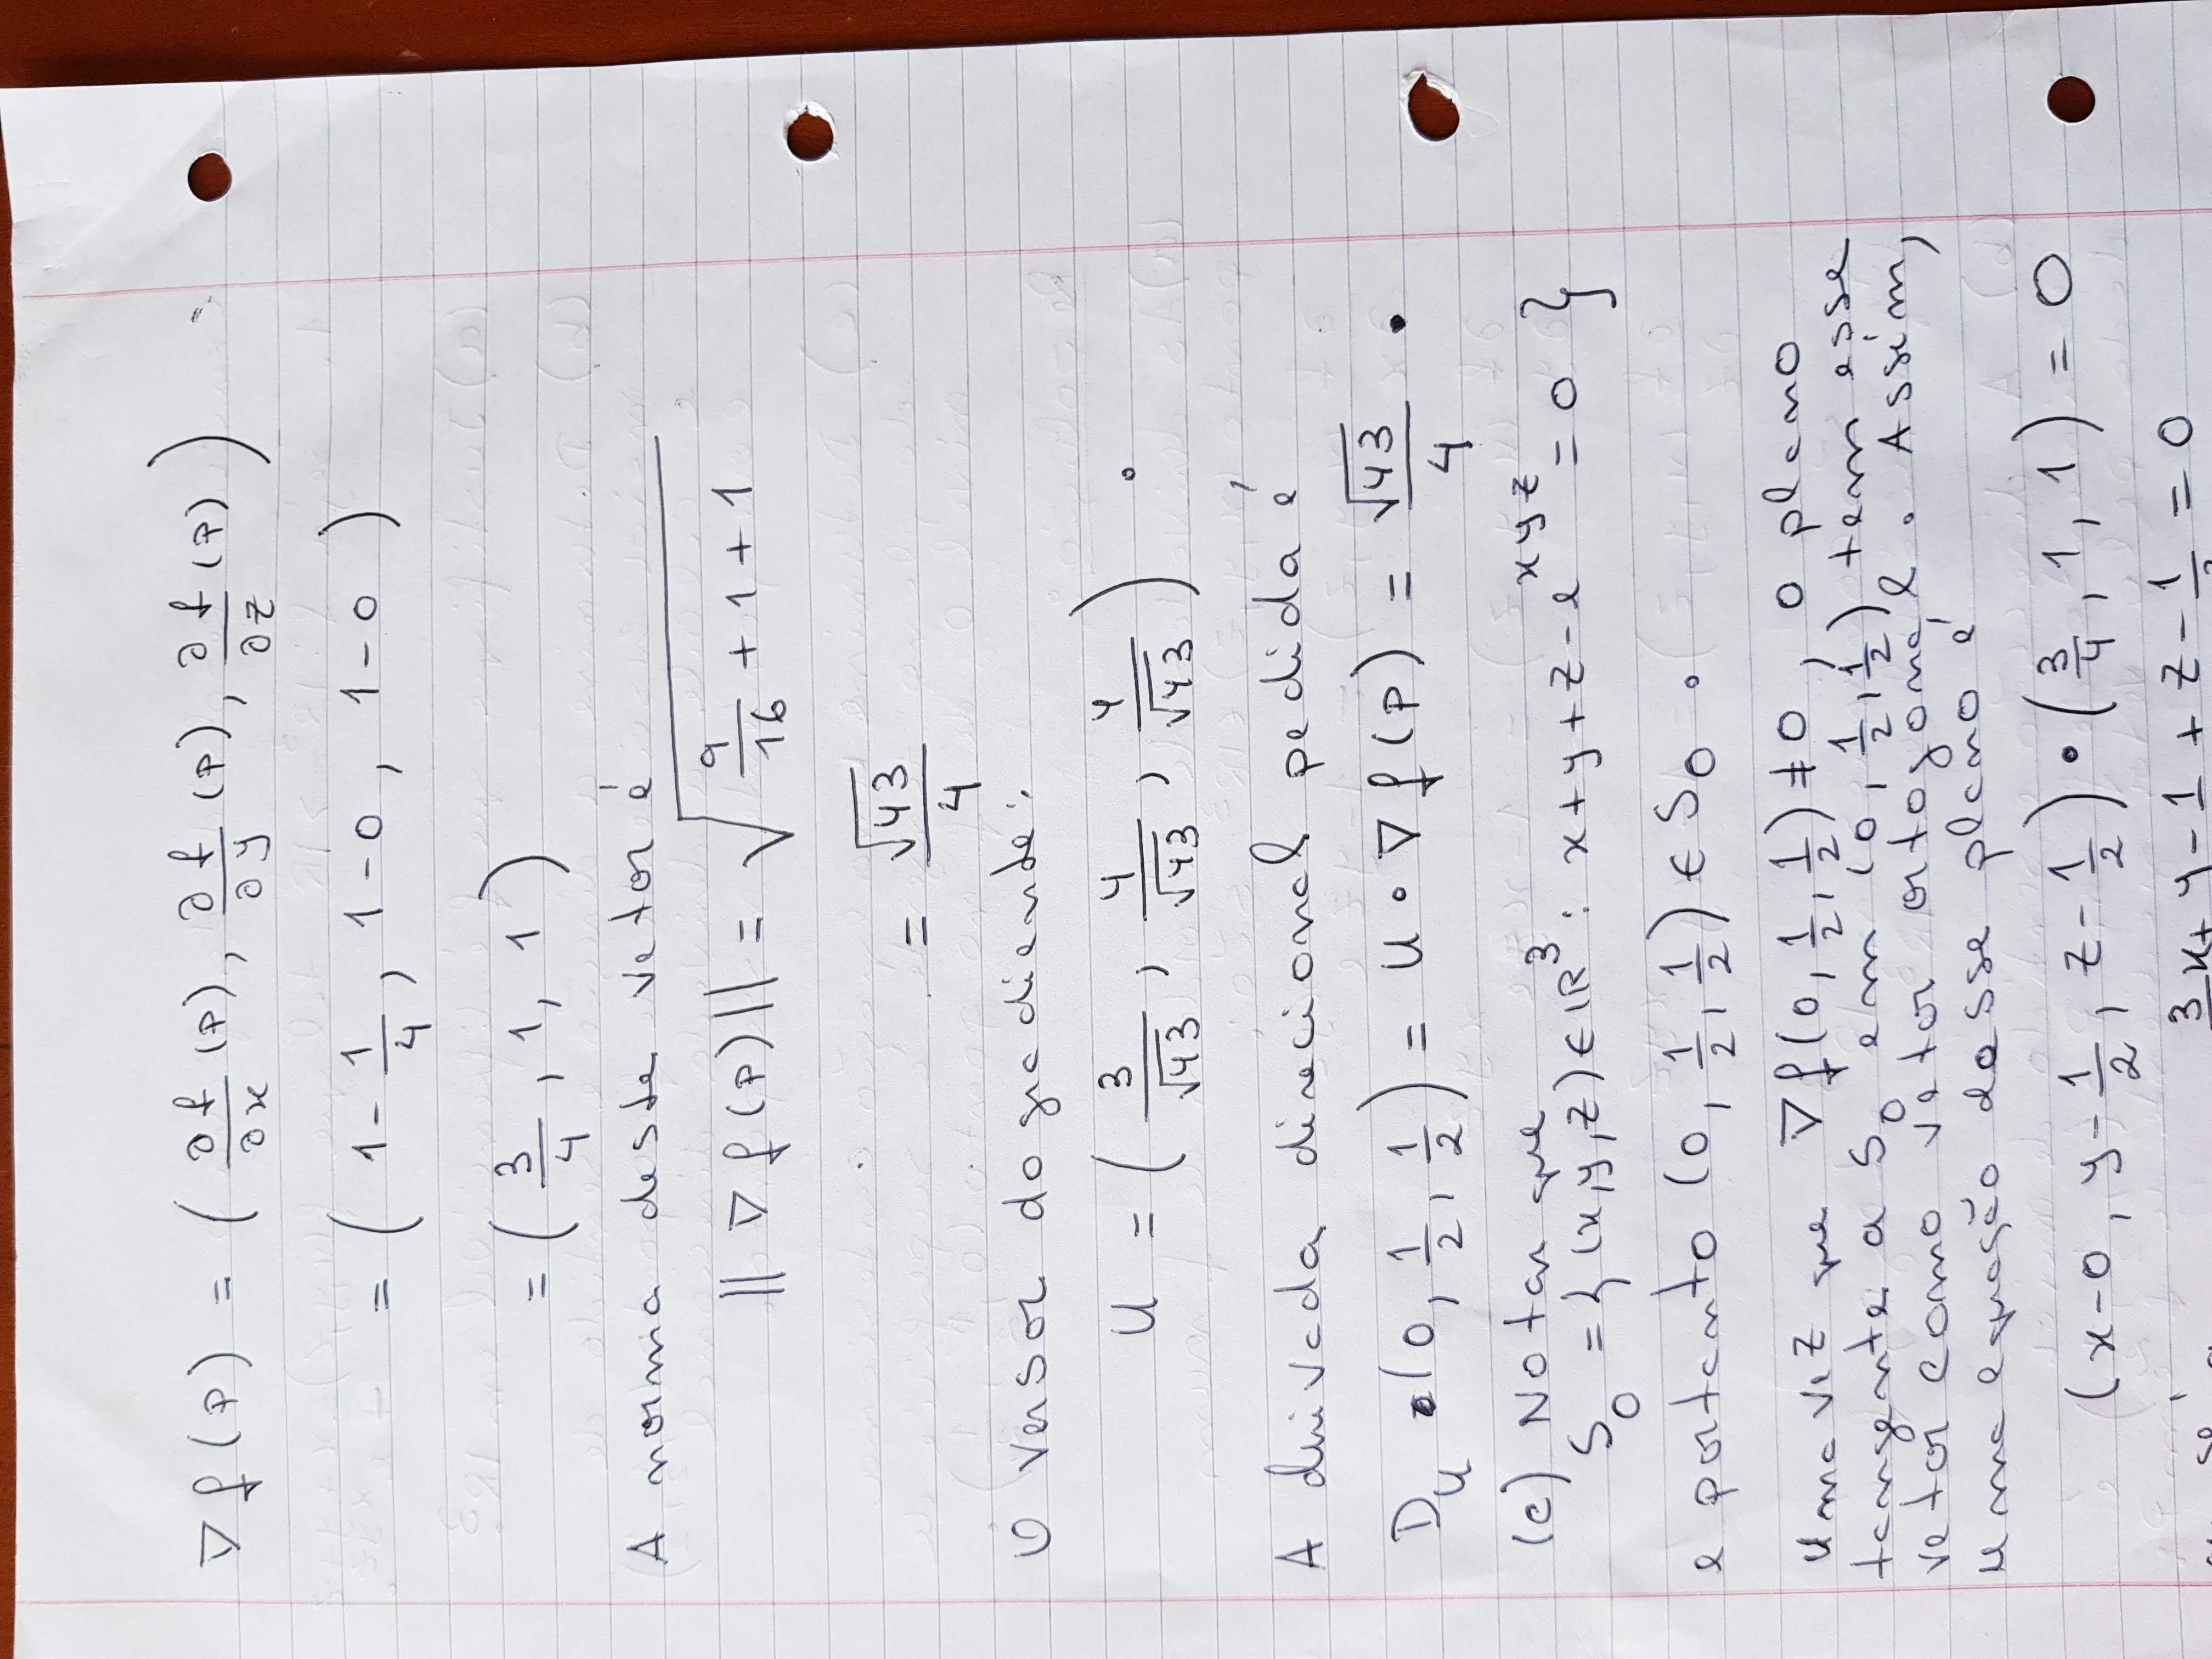 ∇f(P) = ( ∂f/∂x (P), ∂f/∂y (P), ∂f/∂z (P) )
= ( 1 - 1/4, 1 - 0, 1 - 0 )
= ( 3/4, 1, 1 )
A norma deste vetor é
|| ∇f(P) || = √(9/16 + 1 + 1)
= √43/4
O versor do gradiente:
u = ( 3/√43, 4/√43, 4/√43 ).
A derivada direcional pedida é
D_u (0, 1/2, 1/2) = u · ∇f(P) = √43/4.
(c) Notar que
S_0 = { (x,y,z) ∈ IR^3 : x + y + z - e^{xyz} = 0 }
e portanto (0, 1/2, 1/2) ∈ S_0.
Uma vez que ∇f(0, 1/2, 1/2) ≠ 0, o plano
tangente a S_0 em (0, 1/2, 1/2) tem esse
vetor como vetor ortogonal. Assim,
uma equação desse plano é
(x - 0, y - 1/2, z - 1/2) · (3/4, 1, 1) = 0